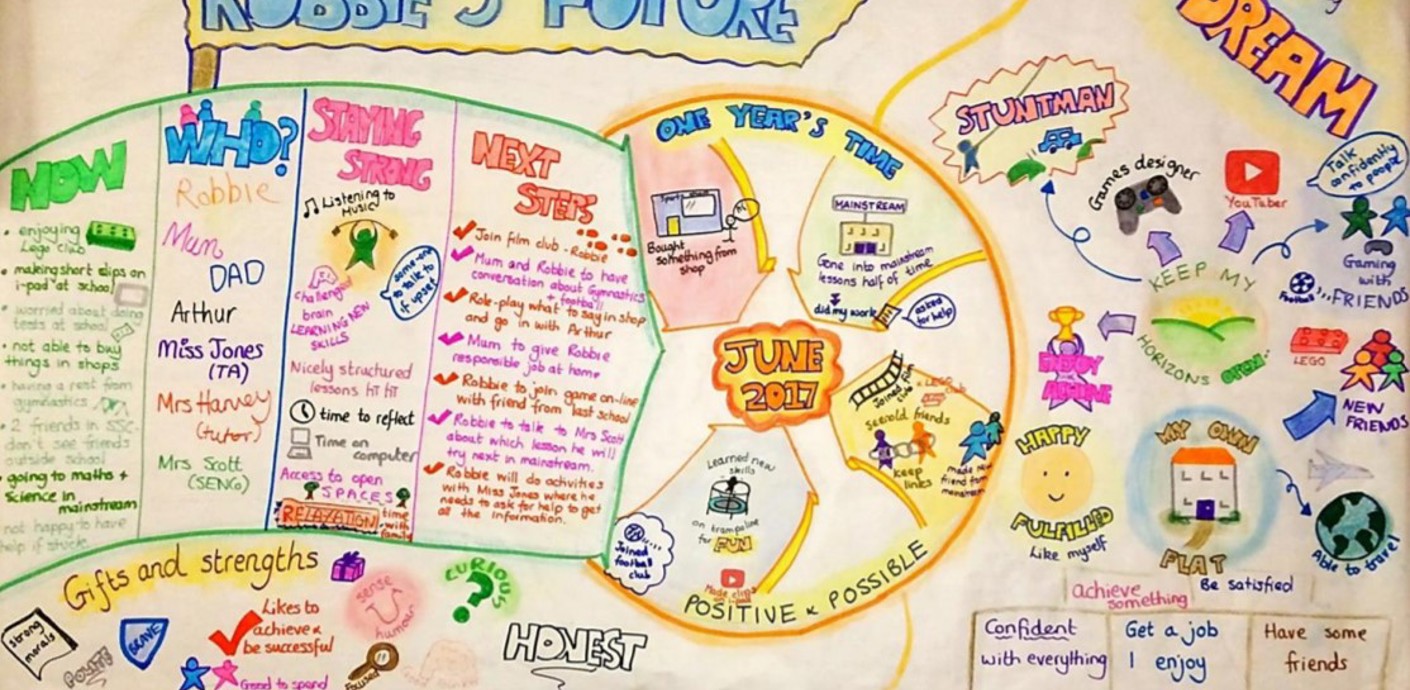 ROBBIE'S FUTURE
DREAM
NOW
• enjoying
Lego club
• making short clips on
i-pad at school
• worried about doing
tests at school
• not able to buy
things in shops
• having a rest from
gymnastics
• 2 friends in SSC-
don't see friends
outside school
• going to maths +
Science in
mainstream
not happy to have
help if stuck
WHO?
Robbie
Mum
DAD
Arthur
Miss Jones
(TA)
Mrs Harvey
(tutor)
Mrs Scott
(SENG)
STAYING
STRONG
Listening to
Music
some-one
to talk to
if upset
Challenge
brain
LEARNING NEW
SKILLS
Nicely structured
lessons
time to reflect
Time on
computer
Access to open
SPACES
RELAXATION
time
with
family
NEXT
STEPS
Join film club - Robbie
Mum and Robbie to have
conversation about Gymnastics
+ football
Role-play what to say in shop
and go in with Arthur
Mum to give Robbie
responsible job at home
Robbie to join game on-line
with friend from last school
Robbie to talk to Mrs Scott
about which lesson he will
try next in mainstream.
Robbie will do activities
with Miss Jones where he
needs to ask for help to get
all the information.
ONE YEAR'S TIME
Bought
something from
shop
MAINSTREAM
Gone into mainstream
lessons half of time
did my work
asked
for help
JUNE
2017
Joined film
club
see old friends
keep
links
made new
friend from
mainstream
Learned new
skills
on trampoline
for FUN
Joined
football
club
Made clips
POSITIVE & POSSIBLE
STUNTMAN
Games designer
YouTuber
Talk
confidently
to people
KEEP MY
HORIZONS OPEN..
Gaming
with
FRIENDS
Football
LEGO
NEW
FRIENDS
HAPPY
FULFILLED
Like myself
MY OWN
FLAT
Able to travel
achieve
something
Be satisfied
Confident
with everything
Get a job
I enjoy
Have some
friends
Gifts and strengths
Strong
morals
POLITE
BRAVE
Likes to
achieve &
be successful
Good to spend
sense
humour
Focused
CURIOUS
HONEST